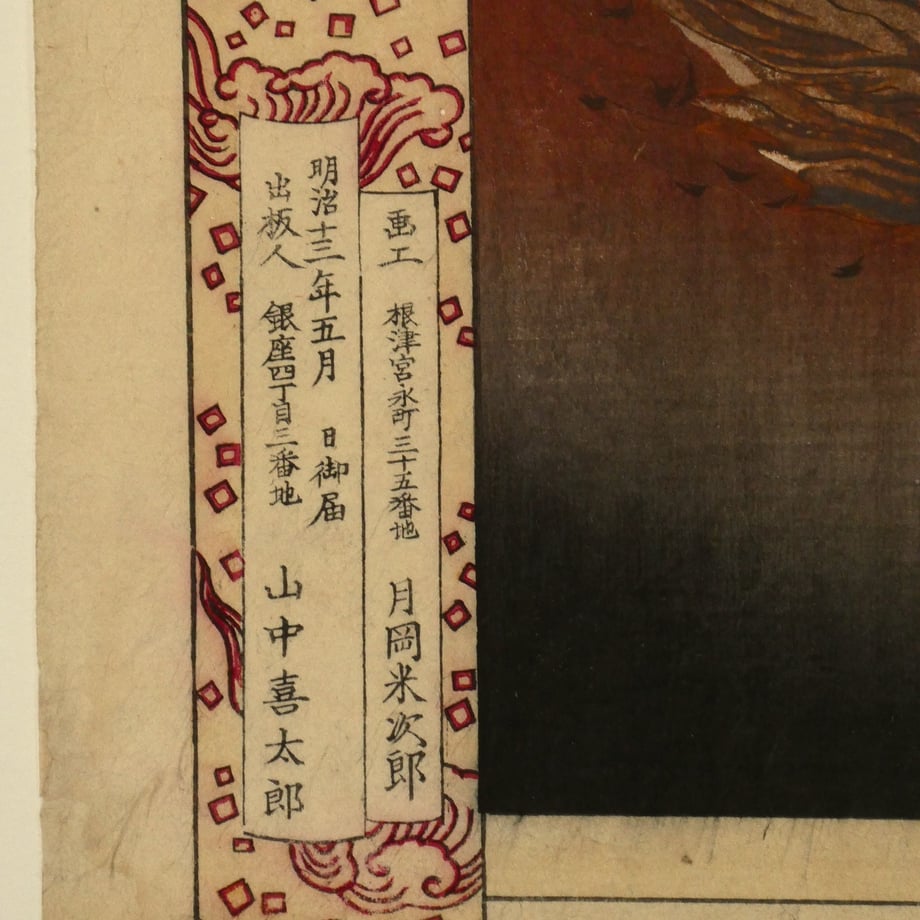 画工 根津宮永町三十五番地 月岡米次郎
明治十三年五月 日御届
出板人 銀座四丁目三番地 山中喜太郎